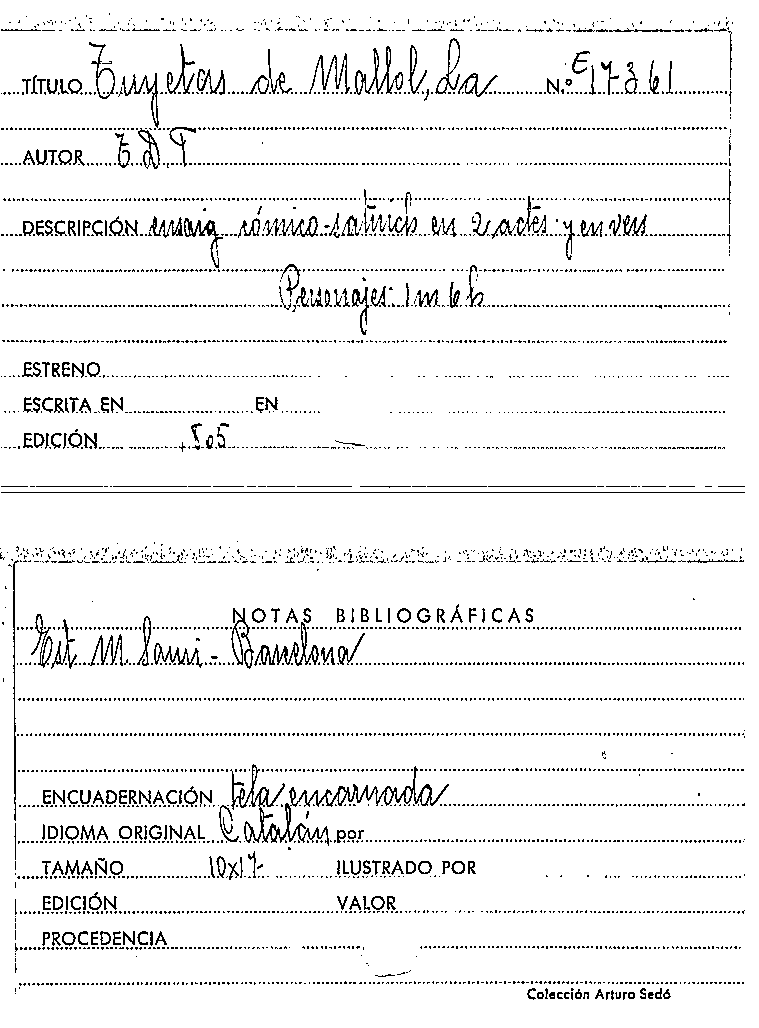 TÍTULO Tuyetas de Mallol, La N.º E17361
AUTOR T. D. T
DESCRIPCIÓN ensaig cómico-satirich en 2 actes y en vers
Personajes: 1 m 6 h
ESTRENO
ESCRITA EN EN
EDICIÓN
NOTAS BIBLIOGRÁFICAS
Est M. Sauri - Barcelona
ENCUADERNACIÓN tela encarnada
IDIOMA ORIGINAL Catalán por
TAMAÑO 10x17 ILUSTRADO POR
EDICIÓN VALOR
PROCEDENCIA
Colección Arturo Sedó